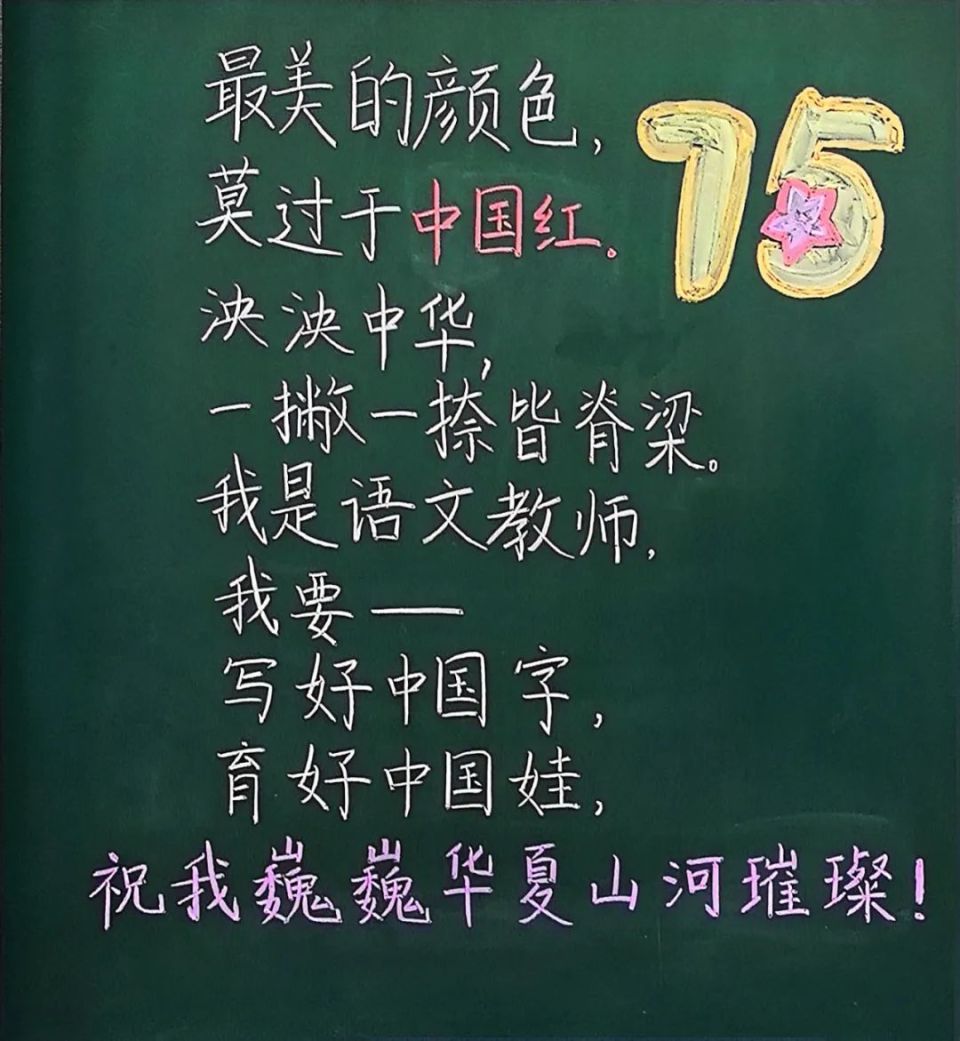 最美的颜色,
75
莫过于中国红。
泱泱中华,
一撇一捺皆脊梁。
我是语文教师,
我要——
写好中国字,
育好中国娃,
祝我巍巍华夏山河璀璨!